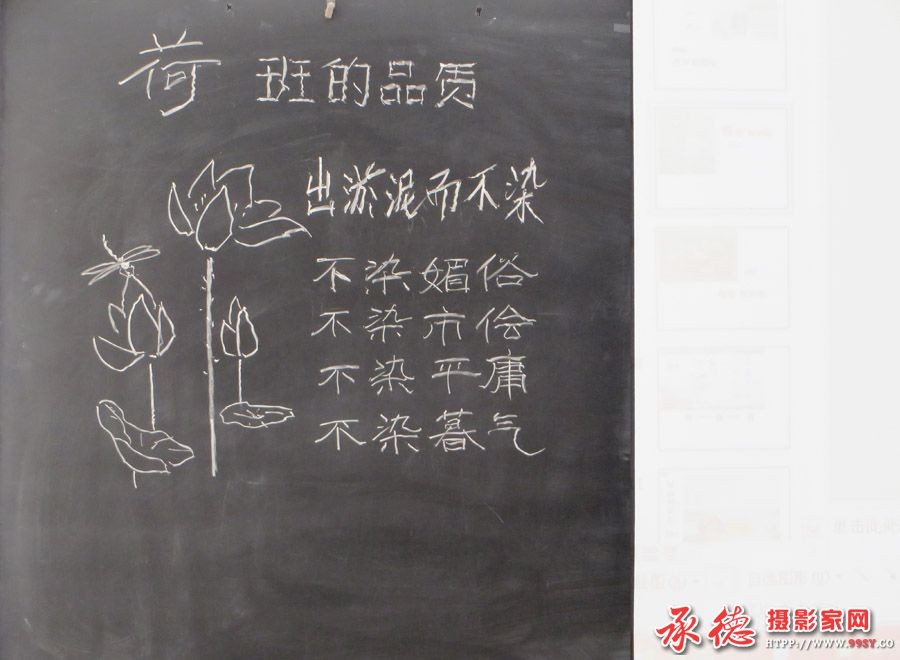 荷 班的品质
出淤泥而不染
不染媚俗
不染市侩
不染平庸
不染暮气
承德 摄影家网
HTTP://WWW.99SY.CO